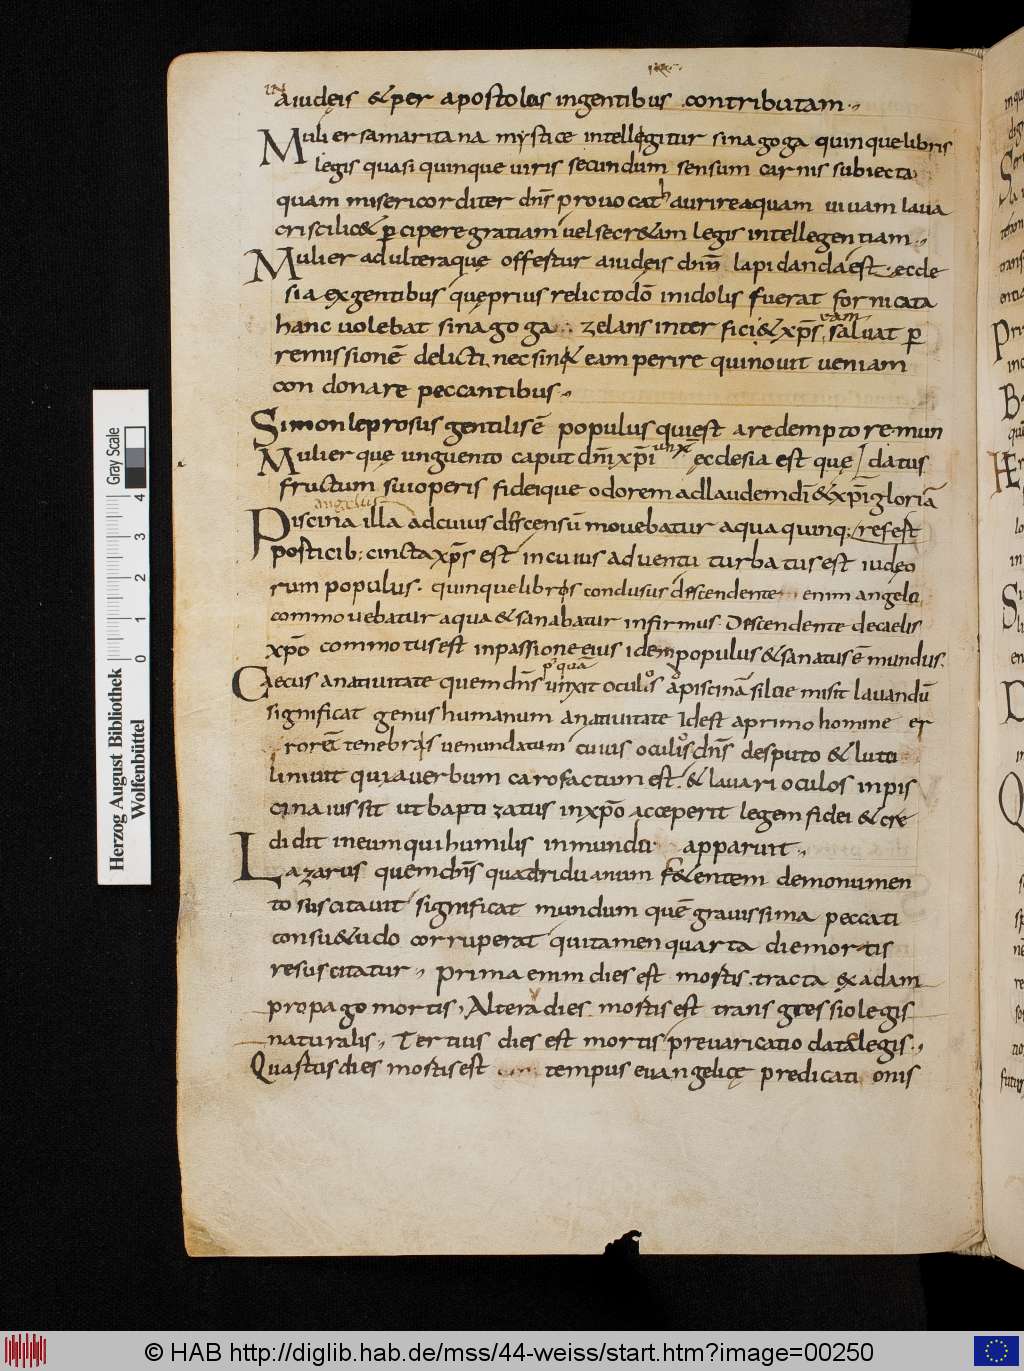 in
aiudęis & per apostolos ingentibus contributam
Mulier samaritana mystice intellegitur sinagoga quinque libris
legis quasi quinque uiris secundum sensum carnis subiecta
quam misericorditer dn̄s prouocat haurire aquam uiuam laua
cri scilic& p̲cipere gratiam uel secr&am legis intellegentiam
Mulier adultera quę offertur a iudeis dn̄m lapidanda est eccle
sia ex gentibus quę prius relicto dō in idolis fuerat fornicata
hanc uolebat sinagoga zelans interfici & xp̄s eam saluat p̲
remissionē delicti nec sin& eam perire qui nouit ueniam
condonare peccantibus
Simon leprosus gentilis ē populus qui est a redemptore mun
Mulier quę unguento caput dn̄i xp̄i unx̄ ęcclesia est quę datus
fructum sui operis fideique odorem ad laudem dī & xp̄i gloriā
angelus
Piscina illa ad cuius descensū mouebatur aqua quinq; refest
posticib; cincta xp̄s est in cuius aduentu turbatus est iudęo
rum populus. quinque libros condusus descendente enim angelo
commouebatur aqua & sanabatur infirmus. Descendente de caelis
xpō commotus est in passione eius idem populus & sanatus ē mundus.
Caecus a natiuitate quem dn̄s unxit oculos p̲quā a piscinā siloe misit lauandū
significat genus humanum a natiuitate Idest a primo homine er
rorē tenebris uenundatum cuius oculos dn̄s desputo & luto
liniuit quia uerbum caro factum est. & lauari oculos in pis
cina iussit ut baptizatus in xpō acceperit legem fidei & cre
didit in eum qui humilis in mundo apparuit
Lazarus quem dn̄s quadriduanum f&entem de monumen
to suscitauit significat mundum quē grauissima peccati
consu&udo corruperat qui tamen quarta die mortis
resuscitatur prima enim dies est mortis tracta ex adam
propago mortis, Altera dies mortis est transgressio legis
naturalis, Tertius dies est mortis preuaricatio datę legis.
Quartus dies mortis est tempus euangelicę predicationis
Herzog August Bibliothek
Wolfenbüttel
Gray Scale
0 1 2 3 4
© HAB http://diglib.hab.de/mss/44-weiss/start.htm?image=00250